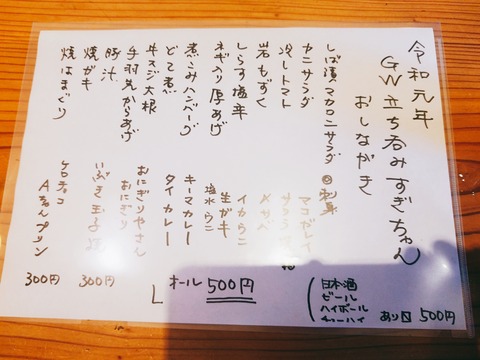 令和元年
GW立ち呑みすぎちゃん
おしながき
しば漬マカロニサラダ
カニサラダ
冷しトマト
岩もずく
しらす塩辛
ネギ入り厚あげ
煮こみハンバーグ
どて煮
牛スジ大根
手羽先からあげ
豚汁
焼ガキ
焼はまぐり
◎刺身
〆サバ
イカウニ
生ガキ
塩水ウニ
キーマカレー
タイカレー
オール 500円
おにぎりやさん
おにぎり
いぶき玉子
300円
ケロチョコ
Aちゃんプリン
300円
日本酒
ビール
ハイボール
チューハイ
500円